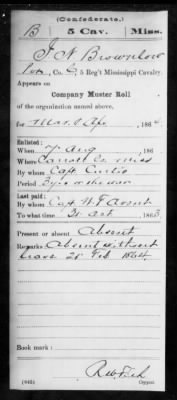 (Confederate.)
B 5 Cav. Miss.
J N Brownlow
Co. C, 5 Reg't Mississippi Cavalry.
Appears on
Company Muster Roll
of the organization named above,
for Mar & Apr, 1864
Enlisted:
When Aug
Where Carroll Co Miss
By whom Capt Curtis
Period 3 yrs or the war
Last paid:
By whom Capt W F
To what time 31 Oct 1863
Present or absent Absent
Remarks Absent without
leave 20 Feb 1864
Book mark:
(642)
Copyist.